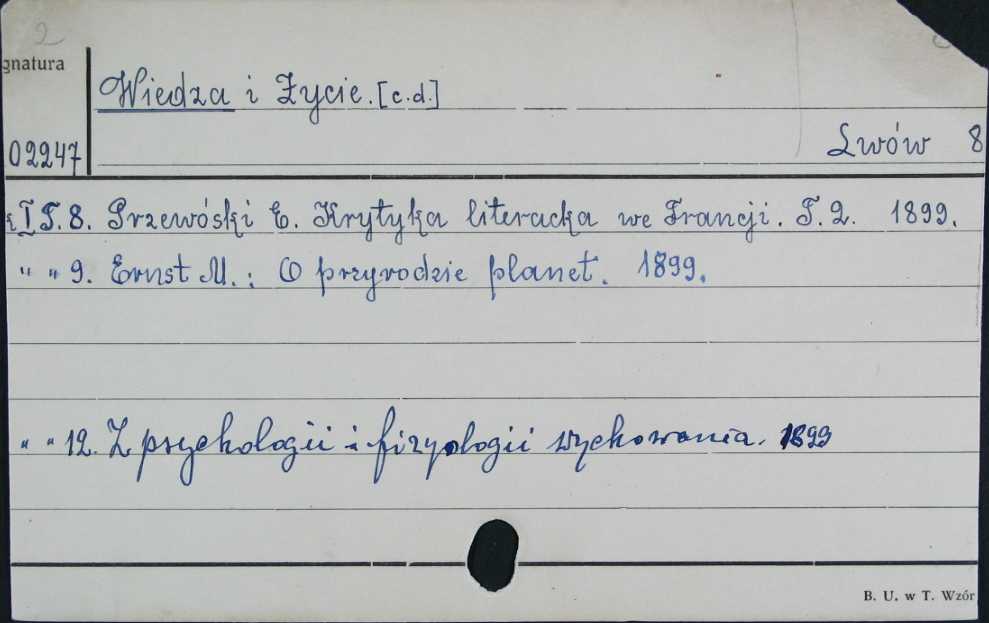 2
gnatura
Wiedza i Życie. [c.d.]
02247
Lwów 8
I T. 8. Przewóski E. Krytyka literacka we Francji. T. 2. 1899.
" " 9. Ernst M.: O przyrodzie planet. 1899.
" " 12. Z psychologii i fizyologii wychowania. 1899
B. U. w T. Wzór